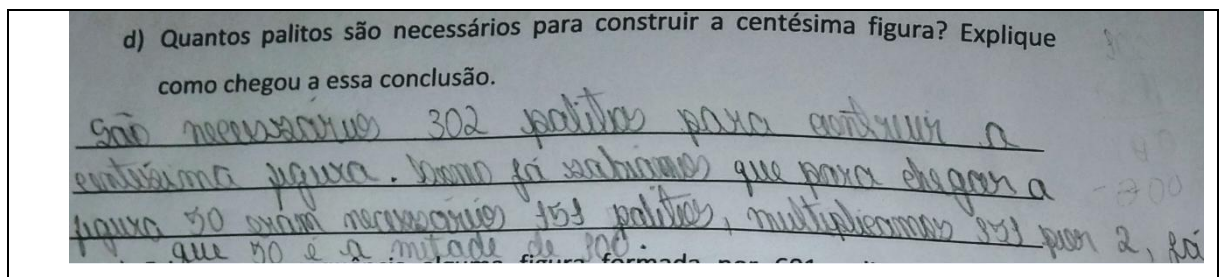 d) Quantos palitos são necessários para construir a centésima figura? Explique
como chegou a essa conclusão.
São necessários 302 palitos para construir a
centésima figura. Como já sabiamos que para chegar a
figura 50 eram necessários 151 palitos, multiplicamos 151 por 2, já
que 50 é a mitade de 100.
figura formada por 601